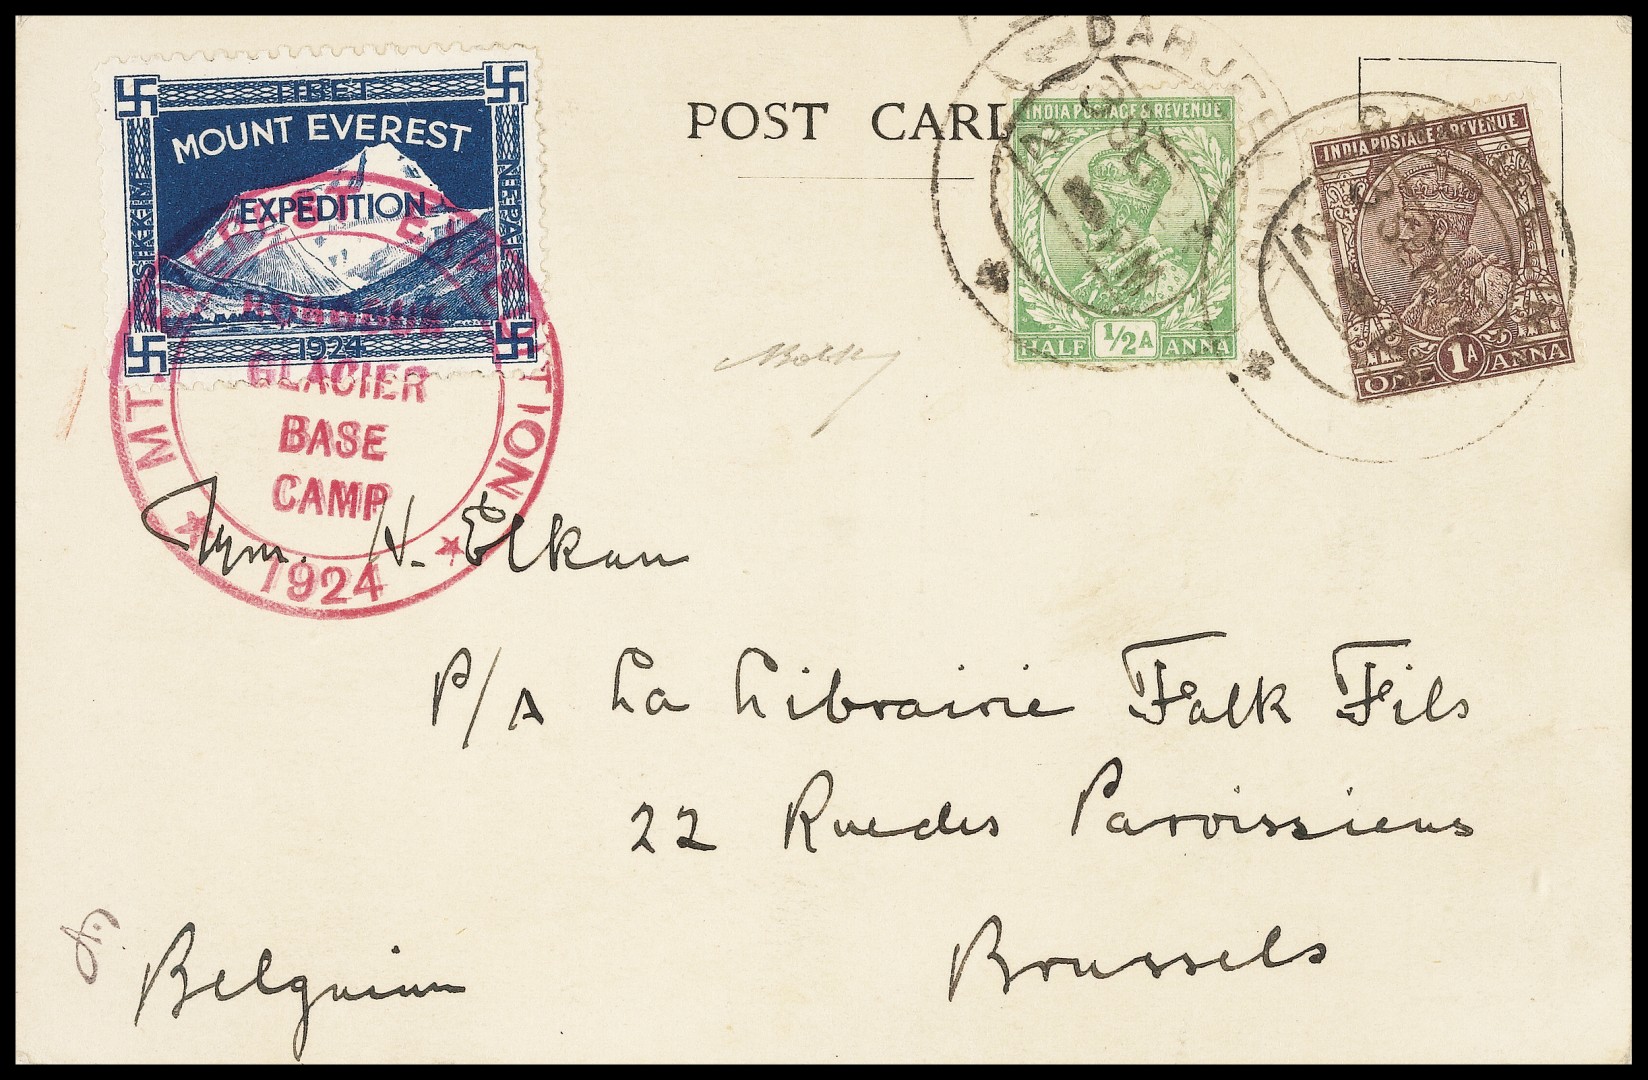 TIBET
MOUNT EVEREST
EXPEDITION
SIKKIM
NEPAL
1924
MT. EVEREST EXPEDITION
RONGBUK
GLACIER
BASE
CAMP
1924
POST CARD
DARJEELING
INDIA POSTAGE & REVENUE
HALF 1/2A ANNA
INDIA POSTAGE & REVENUE
ONE 1A ANNA
H. Elkan
P/A La Librairie Falk Fils
22 Rue des Paroissiens
Brussels
Belguium